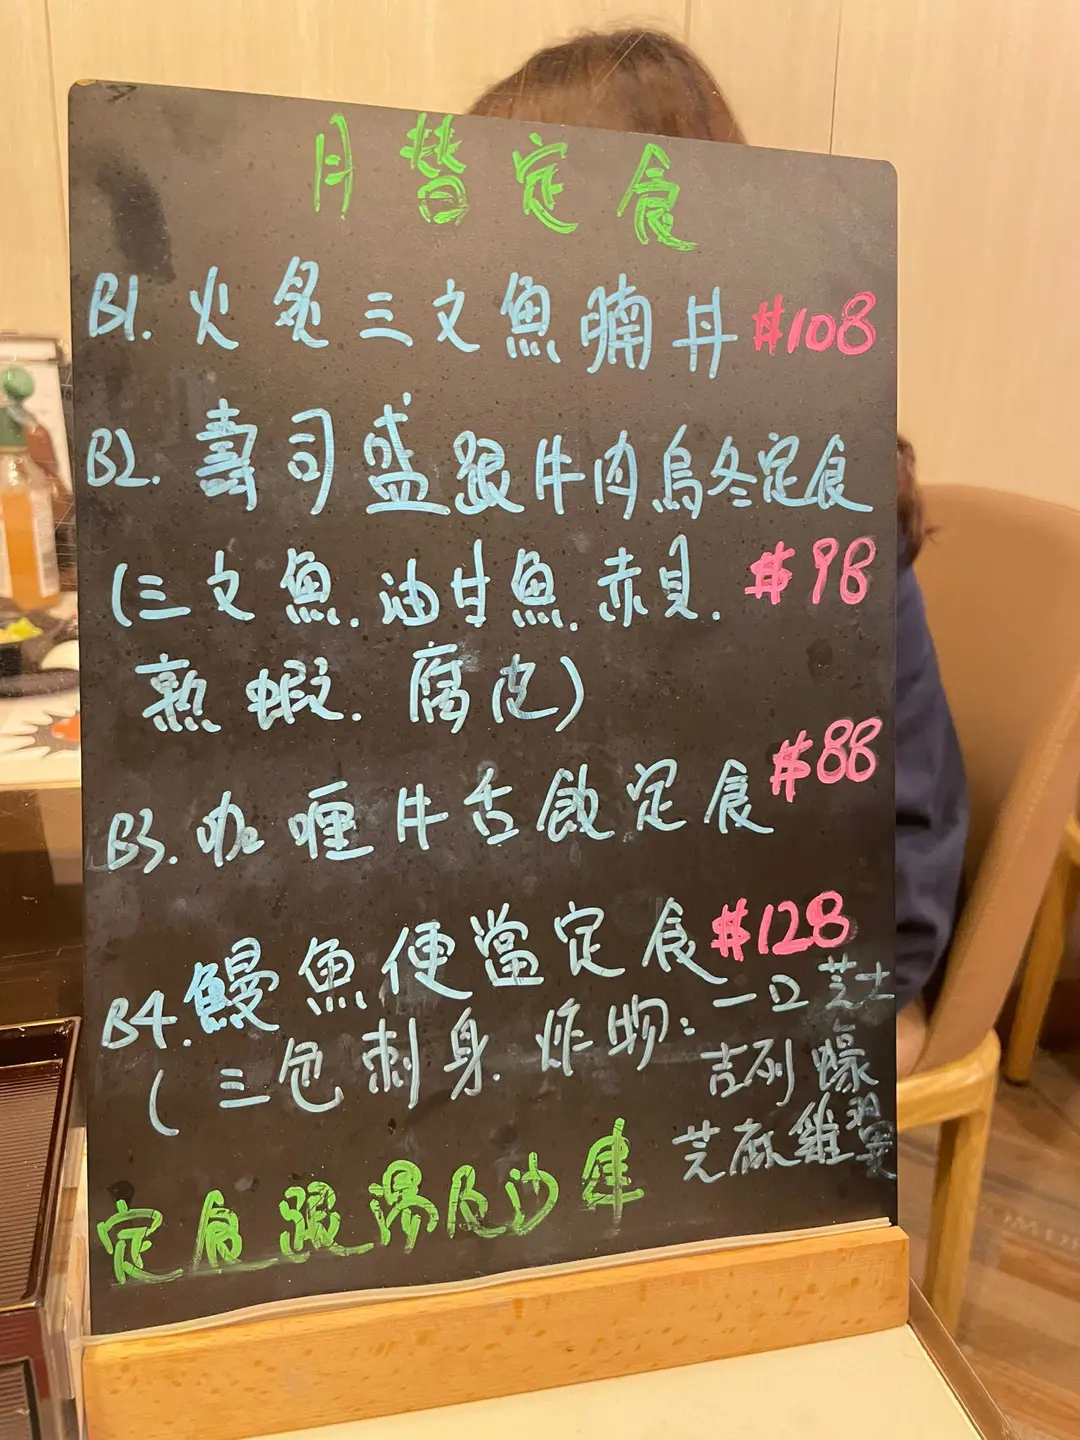 月替定食
B1. 火炙三文魚腩丼 $108
B2. 壽司盛跟牛肉烏冬定食
(三文魚.油甘魚.赤貝. $98
熟蝦.腐皮)
B3. 咖喱牛舌飯定食 $88
B4. 鰻魚便當定食 $128
(三色刺身.炸物: 一口芝士
吉列蠔
芝麻雞翼
定食跟湯及沙律